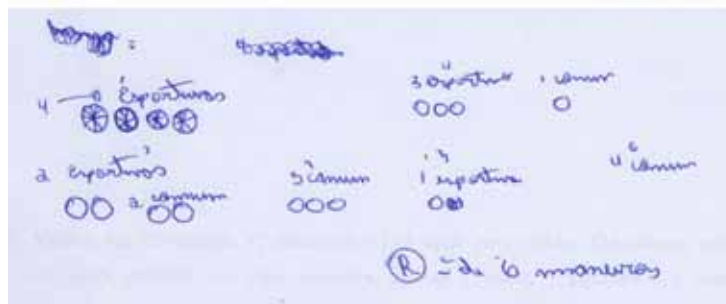 4 esportivos
3 esportivos 1 comum
2 esportivos 2 comum
3 comum 1 esportivo
4 comum
R = de 6 maneiros